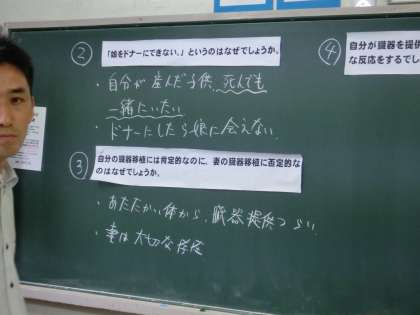 ②
「娘をドナーにできない。」というのはなぜでしょうか。
・自分が産んだ子供、死んでも
一緒にいたい
・ドナーにしたら娘に会えない。
③
自分の臓器移植には肯定的なのに、妻の臓器移植に否定的な
のはなぜでしょうか。
・あたたかい体から、臓器提供つらい
・妻は大切な存在
④
自分が臓器を提供
な反応をするでし